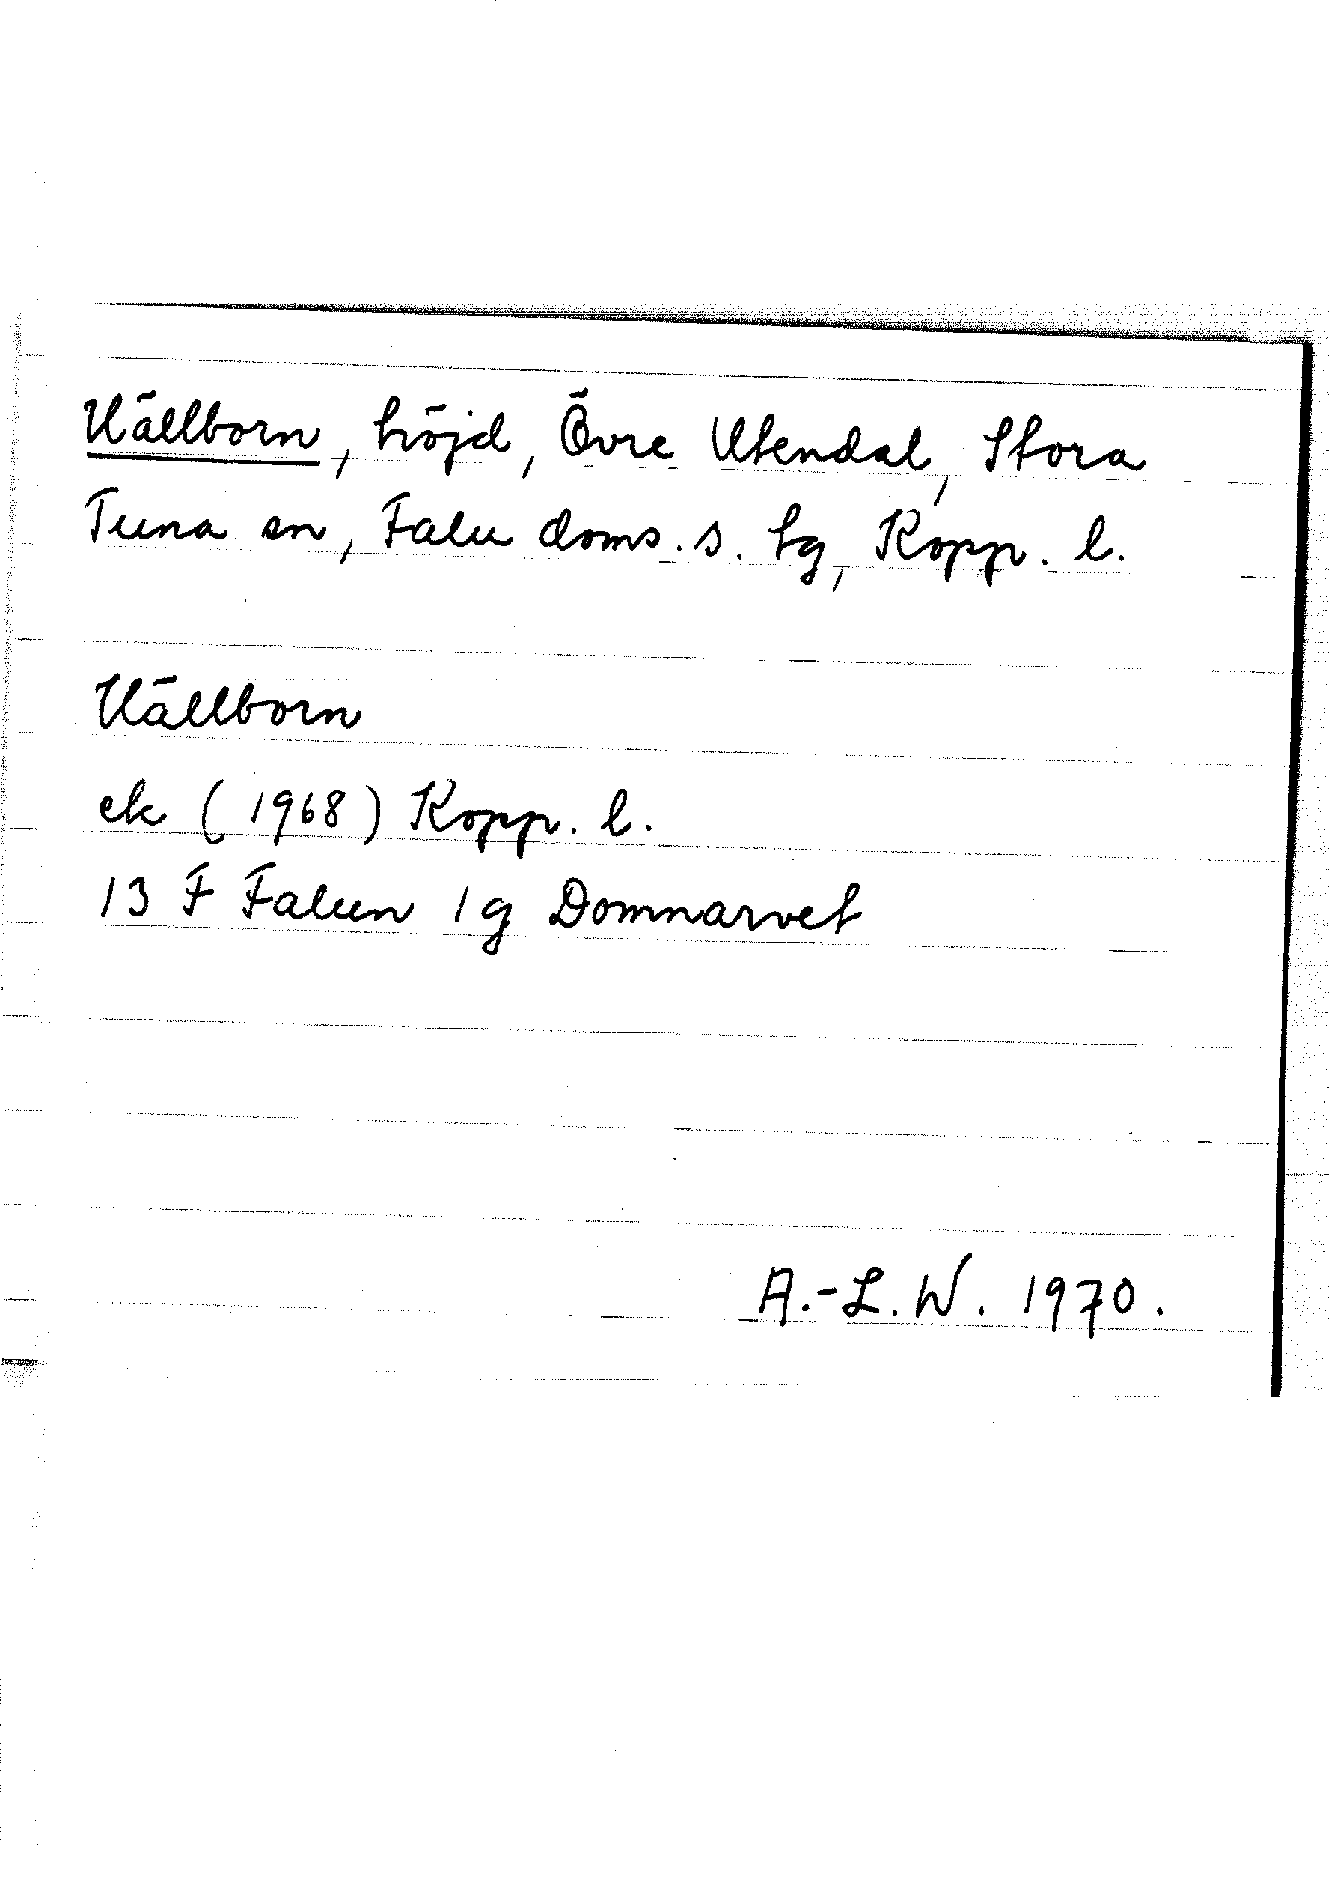 Hällborn, höjd, Övre Utendal, Stora
Tuna sn, Falu doms. s. tg, Kopp. l.
Hällborn
ek (1968) Kopp. l.
13 F Falun 1 g Domnarvet
A.-L. W. 1970.